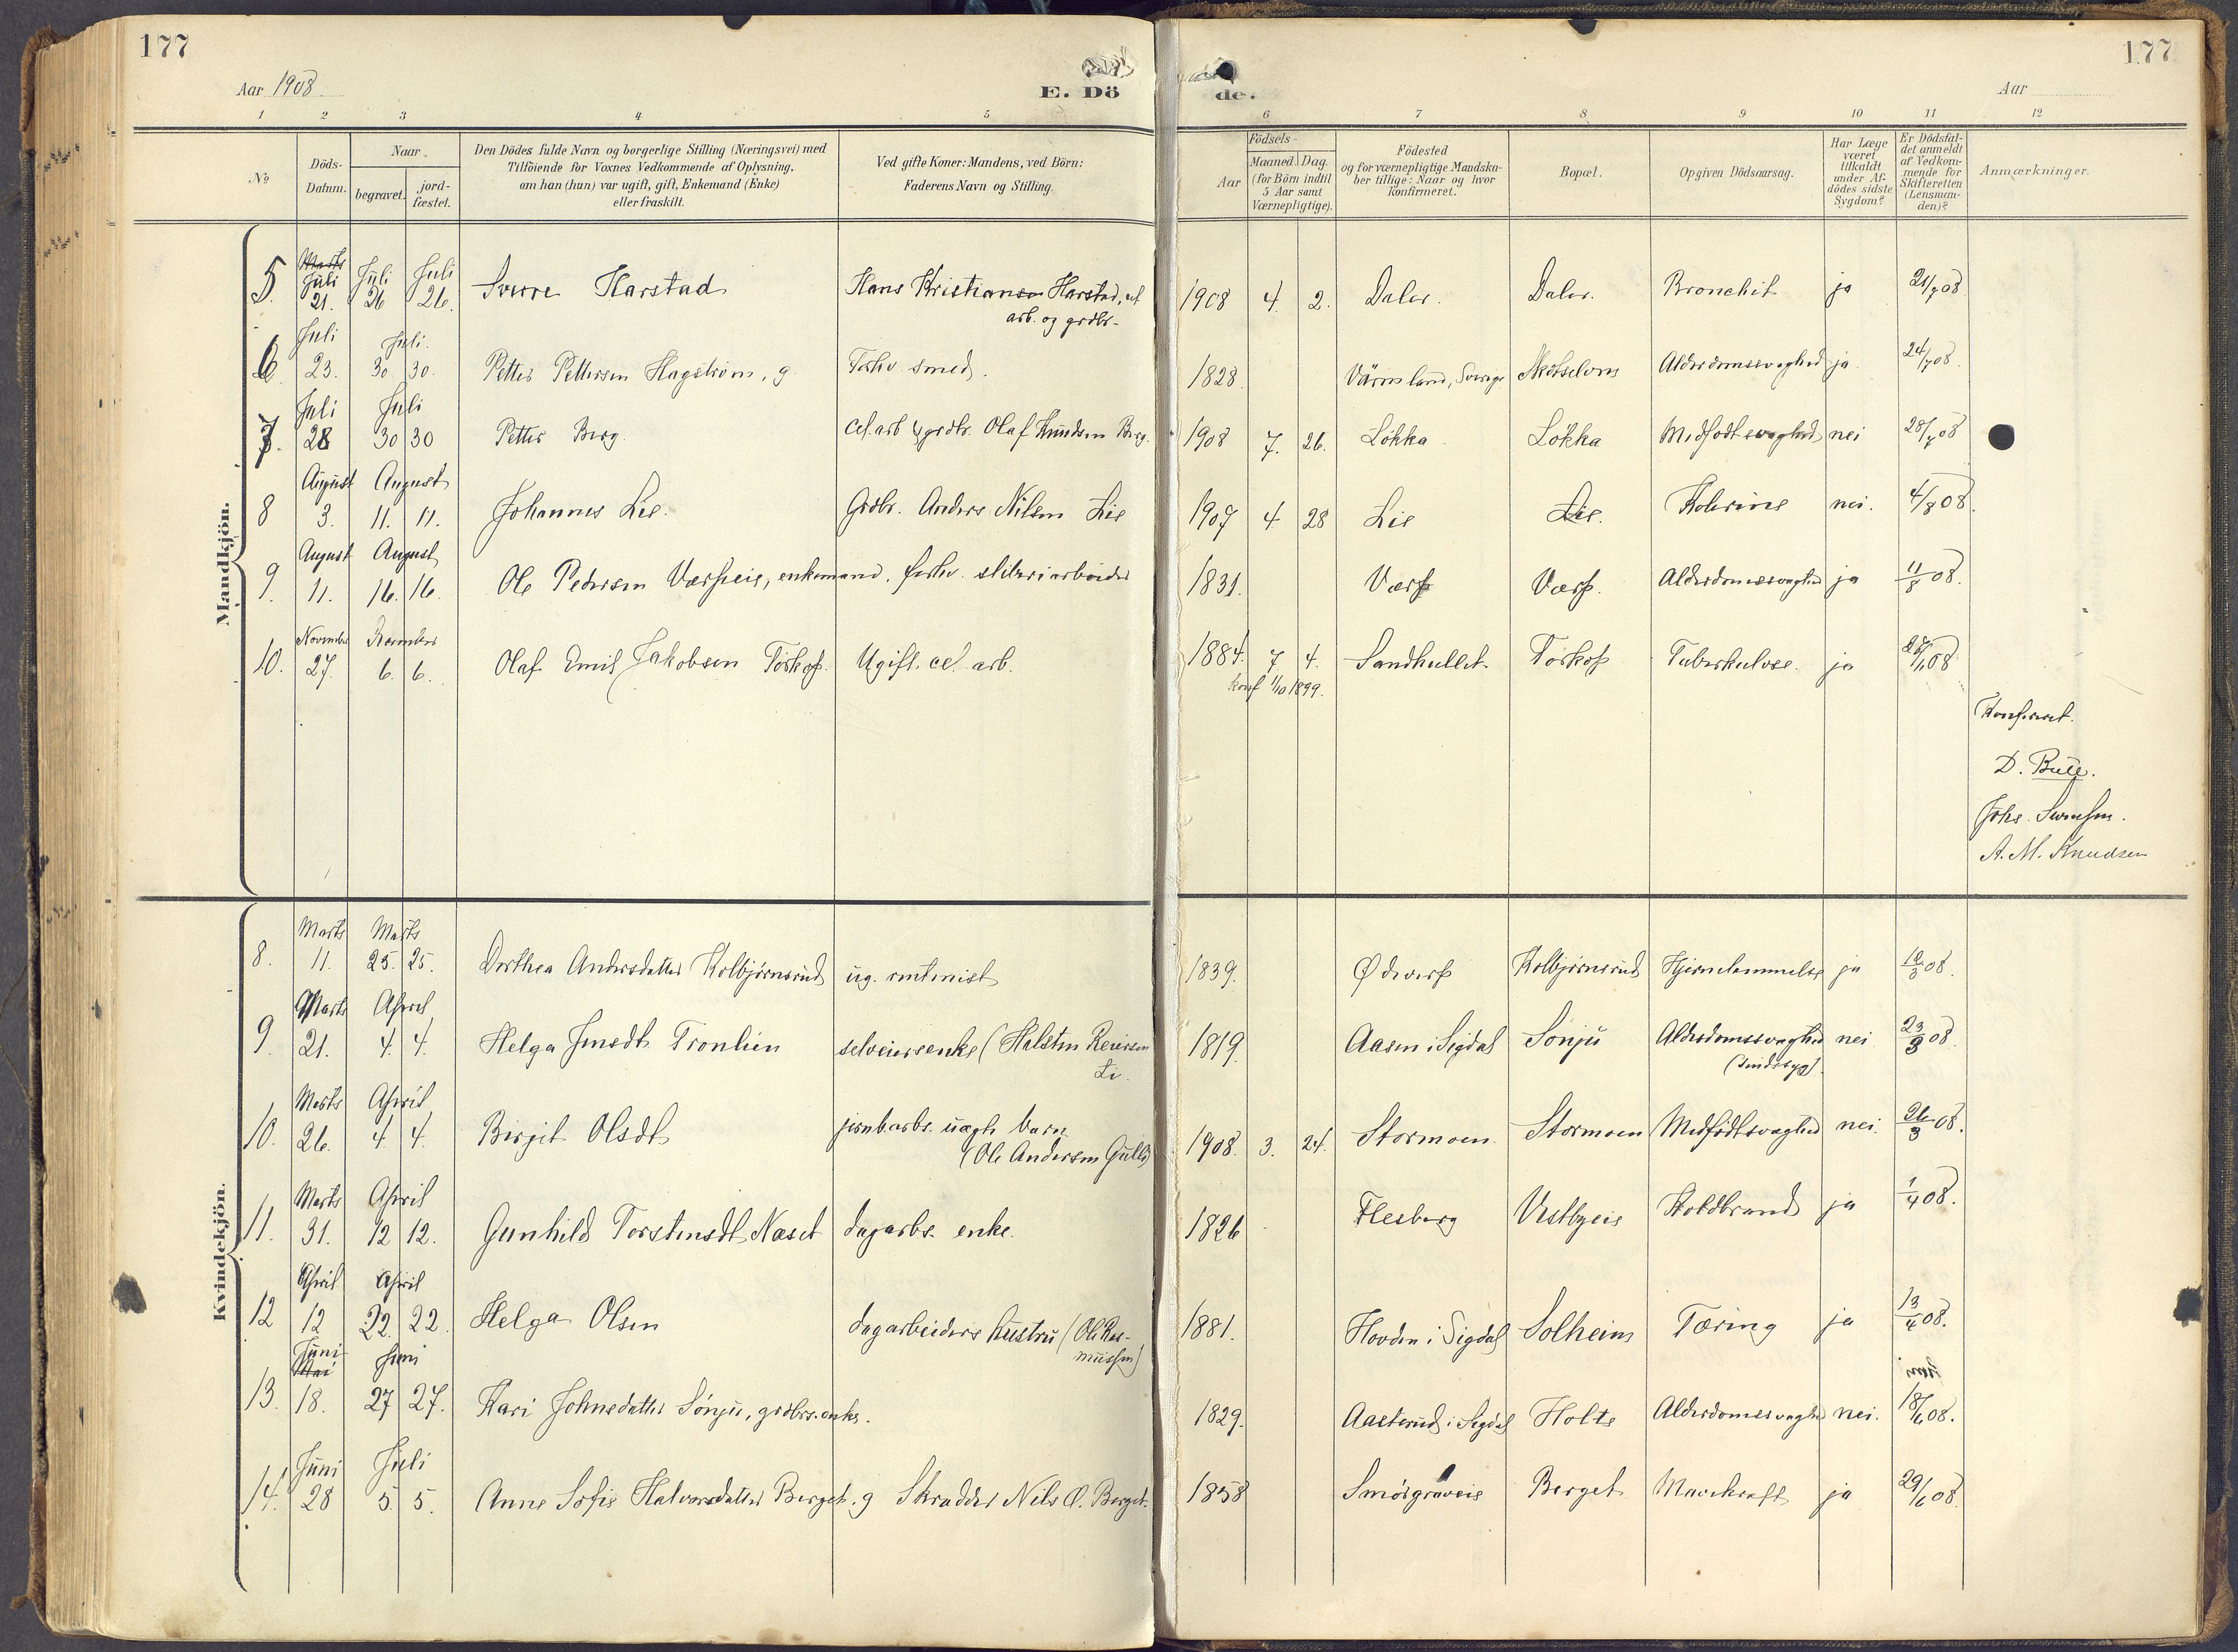 177
177
Aar 1908
E. Dö
de.
Aar
1 2 3 4 5 6 7 8 9 10 11 12
No
Döds-Datum.
Naar
begravet.
jord-fæstet.
Den Dödes fulde Navn og borgerlige Stilling (Næringsvei) med
Tilföiende for Voxnes Vedkommende af Oplysning,
om han (hun) var ugift, gift, Enkemand (Enke)
eller fraskilt.
Ved gifte Koner: Mandens, ved Börn:
Faderens Navn og Stilling.
Födsels-
Aar
Maaned. Dag.
(for Börn indtil
5 Aar samt
Værnepligtige).
Födested
og for værnepligtige Mandska-
ber tillige: Naar og hvor
konfirmeret.
Bopæl.
Opgiven Dödsaarsag.
Har Læge
været
tilkaldt
under Af-
dödes sidste
Sygdom?
Er Dödsfal-
det anmeldt
af Vedkom-
mende for
Skifteretten
(Lensman-
den)?
Anmærkninger.
Mandkjön.
5. Marts Juli 21. Juli 26 Juli 26. Sverre Harstad Hans Kristiansen Harstad, cel. arb. og grdbr. 1908 4. 2. Daler. Daler. Bronchit ja 21/7 08
6. Juli 23. Juli 30. 30. Petter Pettersen Hagström, g. Forhv. smed. 1828. Värmland, Sverige Skotselven Alderdomssvaghed ja 24/7 08.
7. Juli 28 Juli 30 30 Petter Berg. Cel. arb & grdbr. Olaf Knudsen Berg. 1908 7. 26. Løkka Løkka Medfødt svaghed nei 28/7 08
8 August 3. August 11. 11. Johannes Lie. Grdbr. Anders Nilsen Lie 1907 4 28 Lie Lie. Kolerine nei. 4/8 08.
9. August 11. August 16. 16. Ole Pedersen Værpeie, enkemand. forhv. sliberiarbeider 1831. Værp Værp. Alderdomssvaghed ja 11/8 08.
10. November 27. December 6. 6. Olaf Emil Jakobsen Torkop. Ugift. cel. arb. 1884. 7 4. Sandhullet. Torkop Tuberkulose. ja 28/11 08
konf 1/10 1899.
Konfereret.
D. Bull.
Johs. Svensen.
A. M. Knudsen
Kvindekjön.
8. Marts 11. Marts 25. 25. Dorthea Andersdatter Kolbjørnsrud ug. rentenist 1839. Ødeverp Kolbjørnsrud Hjernelammelse ja 12/3 08.
9. Marts 21. April 4. 4. Helga Jensdt Tronlien selveiersenke (Halsten Reiersen Li. 1819. Aasen i Sigdal Sonju Alderdomssvaghed (sindssyg) nei 23/3 08.
10. Marts 26. April 4. 4. Birgit Olsdt jernb.arbr. uægte barn (Ole Andersen Gulli) 1908. 3. 24. Stormoen. Stormoen Medfødt svaghed nei. 26/3 08.
11. Marts 31. April 12 12. Gunhild Torstensdt Næset dagarbr. enke. 1826 Flesberg Vestbyeie Koldbrand ja 1/4 08.
12 April 12 April 22. 22. Helga Olsen dagarbeiders hustru (Ole Rasmussen) 1881. Hovden i Sigdal Solheim Tæring ja 13/4 08.
13. Juni Mai 18. Juni 27 27. Kari Johnsdatter Sønju, grdbrs. enke. 1829. Aasterud i Sigdal Holte Alderdomssvaghed nei. 18/6 08.
14. Juni 28 Juli 5. 5. Anne Sofie Halvorsdatter Berget. g Skrædder Nils O. Berget. 1858 Smørgraveie Berget Mavekræft ja 29/6 08.